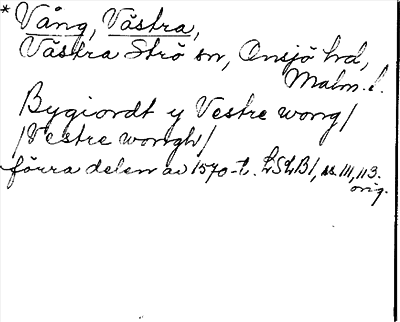 * Vång, Västra,
Västra Strö sn, Onsjö hd,
Malm. l.
Bygiordt y Vestre wong/
/Vestre wongh/
förra delen av 1570-t. LSLB1, s. III, 113.
orig.